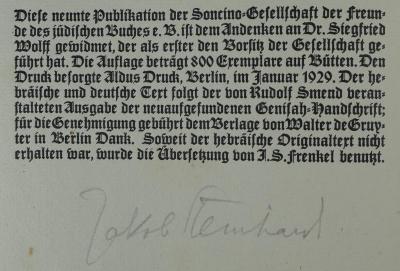 Diese neunte Publikation der Soncino-Gesellschaft der Freun-
de des jüdischen Buches e. V. ist dem Andenken an Dr. Siegfried
Wolff gewidmet, der als erster den Vorsitz der Gesellschaft ge-
führt hat. Die Auflage beträgt 800 Exemplare auf Bütten. Den
Druck besorgte Aldus Druck, Berlin, im Januar 1929. Der he-
bräische und deutsche Text folgt der von Rudolf Smend veran-
stalteten Ausgabe der neuaufgefundenen Genisah-Handschrift;
für die Genehmigung gebührt dem Verlage von Walter de Gruy-
ter in Berlin Dank. Soweit der hebräische Originaltext nicht
erhalten war, wurde die Übersetzung von J. S. Frenkel benutzt.
Jakob Steinhardt